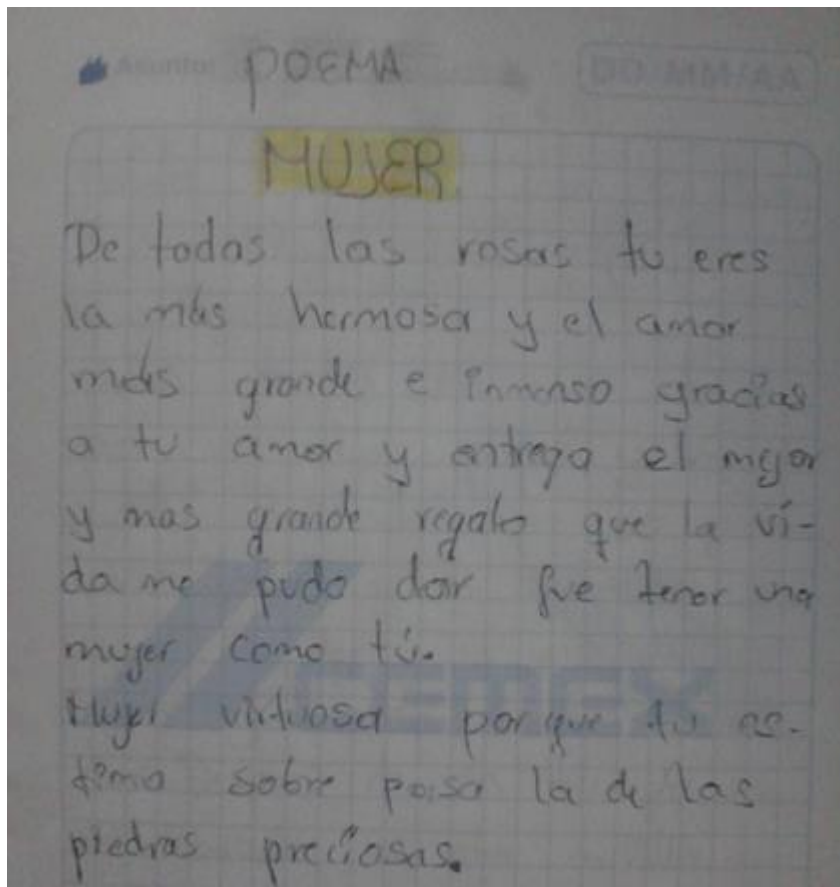 Asunto: POEMA DD/MM/AA
MUJER
De todas las rosas tu eres
la más hermosa y el amor
más grande e inmenso gracias
a tu amor y entrega el mejor
y mas grande regalo que la vi-
da me pudo dar fue tener una
mujer como tú.
CEMEX
Mujer virtuosa porque tu es-
tima sobre pasa la de las
piedras preciosas.